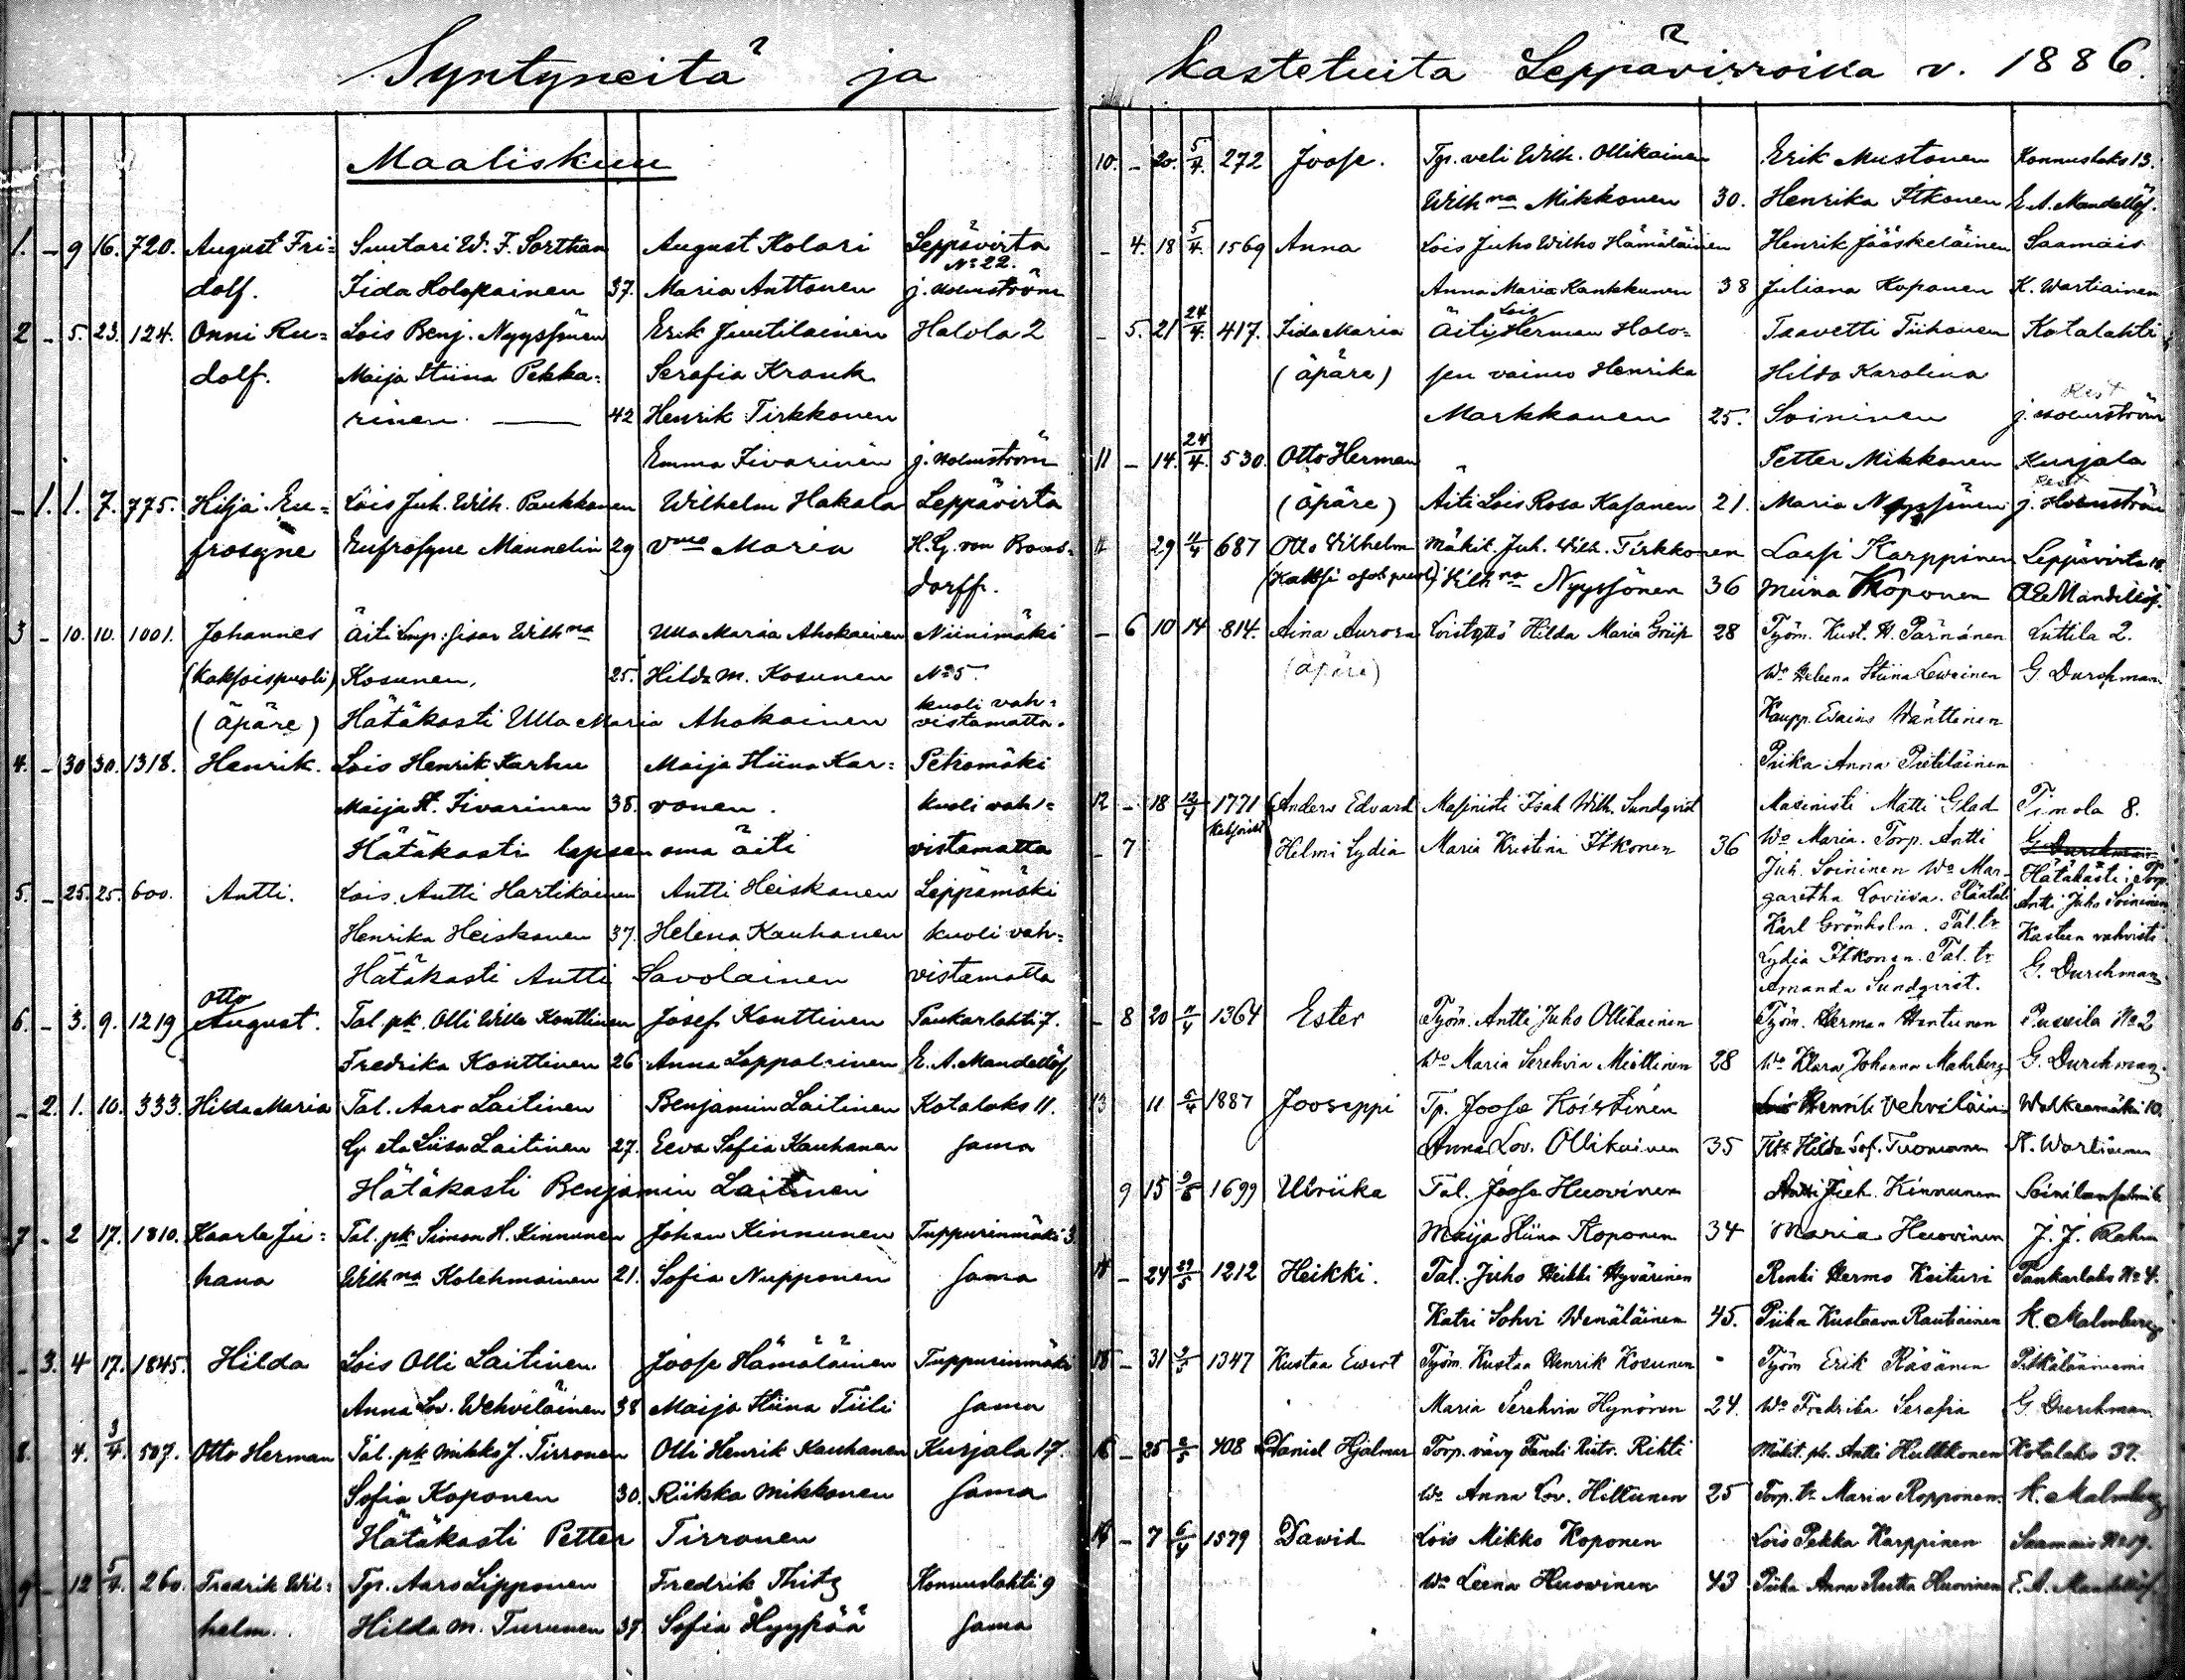 Syntyneitä ja
Maaliskuu
1. - 9 16. 720. August Fri= Suutari W. F. Sorthan August Kolari Leppävirta
No 22.
dolf. Iida Holopainen 37. Maria Anttonen j. Holmström
2 - 5. 23. 124. Onni Ru= Lois Benj. Nyyssönen Erik Juutilainen Halola 2
dolf. Maija Stiina Pekka= Serafia Krank
rinen 42 Henrik Tirkkonen
Emma Iivarinen j. Holmström
- 1. 1. 7. 775. Hilja Eu= Lois Juh. Wilh. Paukkonen Wilhelm Hakala Leppävirta
frosyne Eufrosyne Mannelin 29 Vmo Maria H. G. von Bons=
dorff.
3 - 10. 10. 1001. Johannes Äiti Lmp: sisar Wilhna Ulla Maria Ahokainen Niinimäki
(kaksoispuoli) Kosunen, 25. Hilda M. Kosunen No 5
kuoli vah=
(äpäre) Hätäkasti Ulla Maria Ahokainen vistamatta.
4. - 30 30. 1318. Henrik. Lois Henrik Karhu Maija Stiina Kar= Petromäki
Maija St. Iivarinen 38. vonen. kuoli vah=
Hätäkasti lapsen oma äiti vistamatta
5. - 25. 25. 600. Antti. Lois. Antti Hartikainen Antti Heiskanen Leppämäki
Henrika Heiskanen 37. Helena Kauhanen kuoli vah=
Hätäkasti Antti Savolainen vistamatta
Otto
6. - 3. 9. 1219 August. Tal. pk. Olli Wille Konttinen Josef Konttinen Paukarlahti 7.
Fredrika Konttinen 26 Anna Lappalainen E. A. Mandellöf
- 2. 1. 10. 333. Hilda Maria Tal. Aaro Laitinen Benjamin Laitinen Kotalaks 11.
Liisa Laitinen 27. Eeva Sofia Kauhanen sama
Hätäkasti Benjamin Laitinen
7 - 2 17. 1810. Kaarle Ju= Tal. pk Simon H. Kinnunen Johan Kinnunen Tuppurinmäki 3
hana Wilhna Kolehmainen 21. Sofia Nupponen sama
- 3. 4 17. 1845. Hilda Lois Olli Laitinen Joose Hämäläinen Tuppurinmäki
Anna Lov. Wehviläinen 38 Maija Stiina Tiili sama
8. 4. 3/4. 507. Otto Herman Tal. pk Mikko J. Tirronen Olli Henrik Kauhanen Kurjala 17.
Sofia Koponen 30. Riikka Mikkonen sama
Hätäkasti Petter Tirronen
9 - 12 5/4. 260. Fredrik Wil= Tp. Aaro Lipponen Fredrik Thitz Konnuslahti 9
helm. Hilda M. Turunen 37. Sofia Hyypää sama
kastetuita Leppävirroilla v. 1886.
10. - 20. 5/4. 272 Joose. Tp. veli Wilh. Ollikainen Erik Mustonen Konnuslaks 13.
Wilhna Mikkonen 30. Henrika Itkonen E. A. Mandellöf.
- 4. 18 5/4. 1569 Anna Lois Juho Wilho Hämäläinen Henrik Jääskeläinen Saamais
Anna Maria Kankkunen 38 Juliana Koponen K. Wartiainen
Lois
- 5. 21 24/4. 417. Iida Maria Äiti Herman Holo= Taavetti Tiihonen Kotalahti
(äpäre) sen vaimo Henrika Hilda Karolina
Markkanen 25. Soininen j. Holmström
11 - 14. 24/4. 530. Otto Herman Petter Mikkonen Kurjala
(äpäre) Äiti Lois Rosa Kasanen 21. Maria Nyyssönen j. Holmström
29 687 Otto Wilhelm Mäkit. Juh. Wilh. Tirkkonen Lassi Karppinen Leppävirta
Wilhna Nyyssönen 36 Miina Koponen Mandellöf.
- 6 10 14 814. Aina Aurora Loistyttö Hilda Maria Griip 28 Työm. Kust. H. Pärnänen Luttila 2.
(äpäre) Wo Helena Stiina Lewainen G. Durchman.
Kaupp. Wänttinen
Piika Anna Pietiläinen
12 - 18 12/4 1771 Anders Edvard Masinisti Isak Wilh. Sundqvist Masinisti Matti Glad Timola 8.
- 7 Helmi Lydia Maria Kristina Itkonen 36 Wo Maria. Torp. Antti G. Durchman
Juh. Soininen Wo Mar- Hätäkasti: Torp.
garetha Loviisa. Räätäli Antti Juho Soininen
Karl Grönholm. Tal. tr. Kasteen vahvisti
Lydia Itkonen. Tal. tr. G. Durchman.
Amanda Sundqvist.
- 8 20 1364 Ester Työm. Antti Juho Ollikainen Työm. Herman Hintunen No 2
Wo Maria Serehvia Miettinen 28 Wo Klara Johanna Mahrberg G. Durchman.
13 11 5/4 1887 Jooseppi Tp. Joose Koistinen Henrik Vehviläin Walkeamäki 10.
Anna Lov. Ollikainen 35 Hilda Sof. Tuomainen K. Wartiainen
9 15 1699 Ulriika Tal. Joose Huovinen Antti Juh. Kinnunen
Maija Stiina Koponen 34 Maria Huovinen J. J. Rahm
- 24 1212 Heikki. Tal. Juho Heikki Hyvärinen Renki Hermo Keituri Paukarlaks No 4.
Katri Sohvi Wenäläinen 45. Piika Kustaava Rautiainen K. Malmberg
- 31 1347 Kustaa Ewert Työm. Kustaa Henrik Kosunen - Työm Erik Räsänen Pitkälänniemi
Maria Serehvia Hynönen 24. Wo Fredrika Serafia G. Durchman
- 25 408 Daniel Hjalmar Torp. vävy Rihti Mäkit. pk. Antti Hulkkonen Kotalaks 37.
Wo Anna Lov. Hiltunen 25 Torp. tr Maria Ropponen K. Malmberg
- 7 1579 Dawid Lois Mikko Koponen Lois Pekka Karppinen Saamais No 19.
Wo Leena Huowinen 43 Piika Anna Reetta Huovinen E. A. Mandellöf